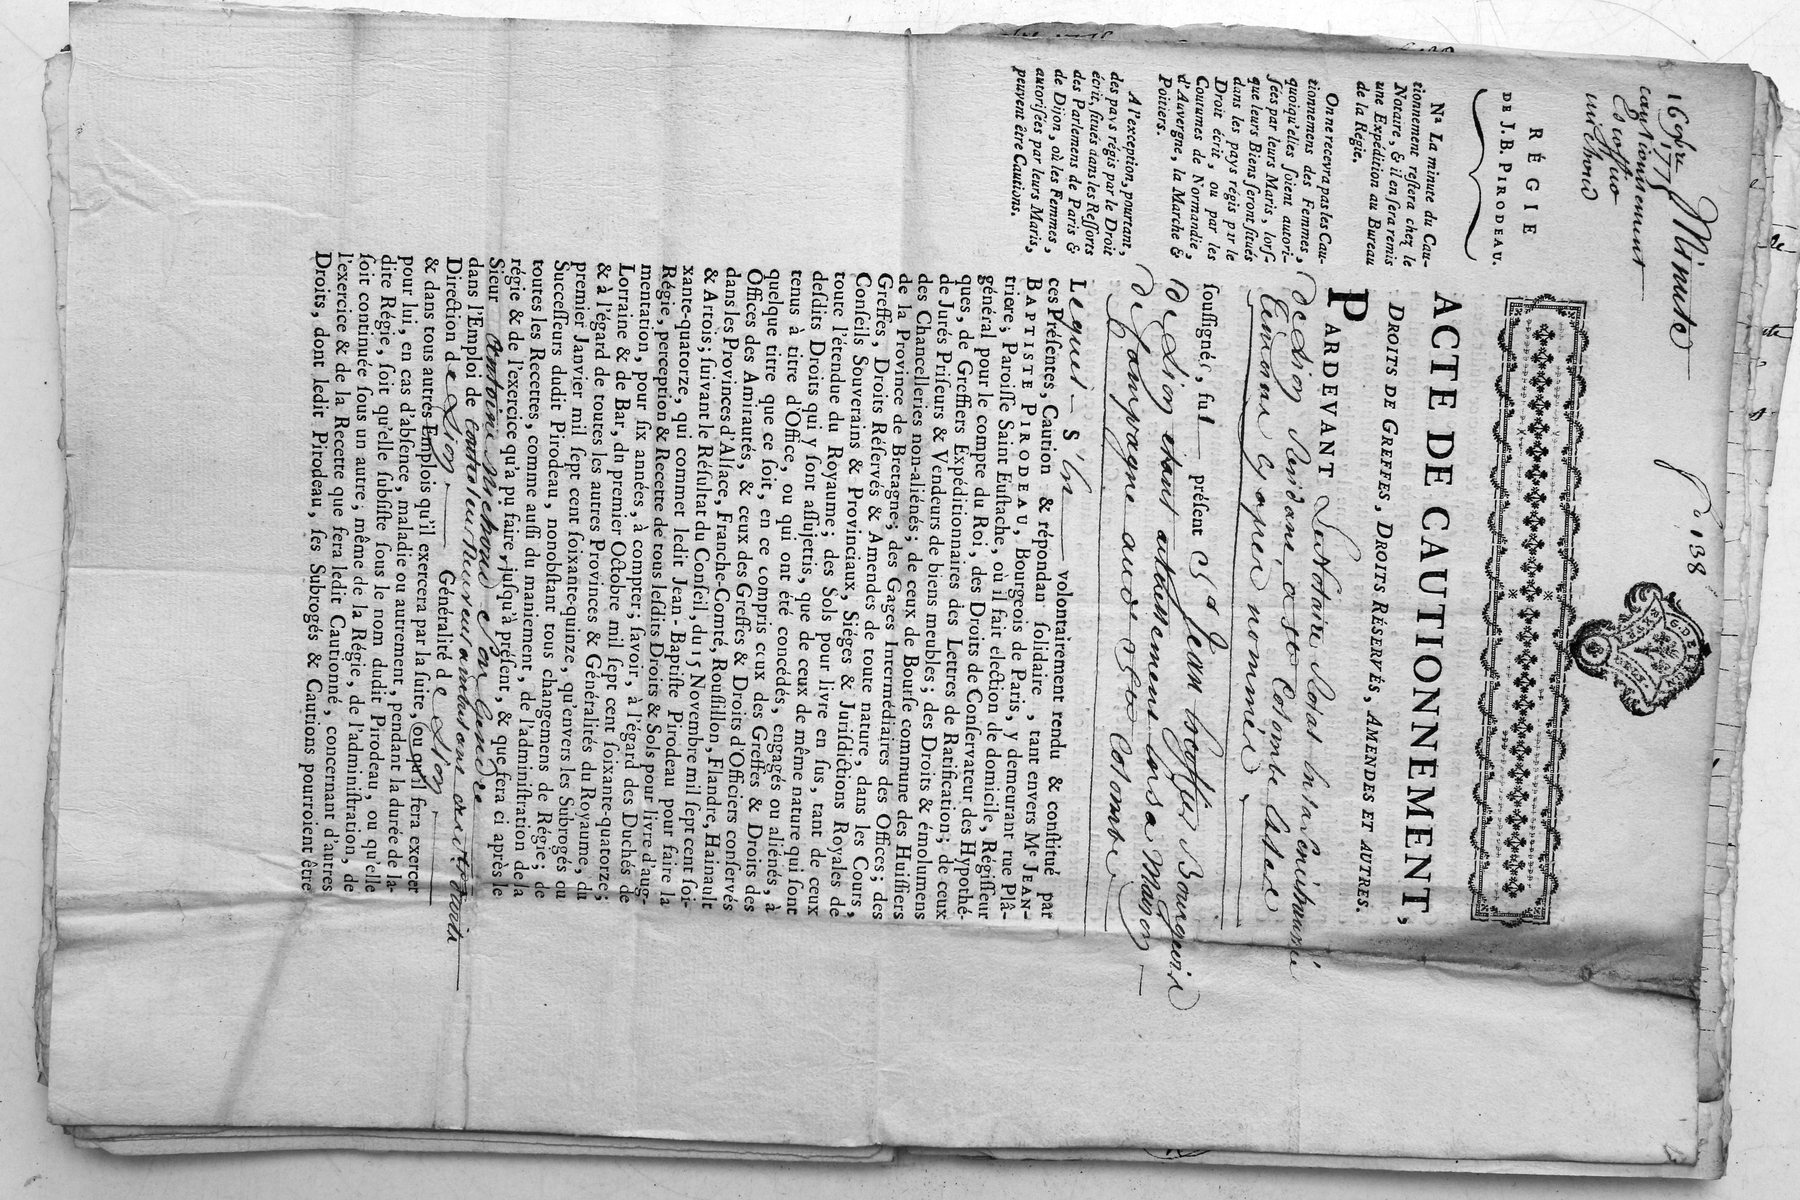 16 9bre 1775
cautionnement
Escoffier
michond
Minute
138
RÉGIE
DE J. B. PIRODEAU.
Nª La minute du Cau-
tionnement restera chez le
Notaire, & il en sera remis
une Expédition au Bureau
de la Régie.
On ne recevra pas les Cau-
tionnemens des Femmes,
quoiqu'elles soient autori-
sées par leurs Maris, lors-
que leurs Biens seront situés
dans les pays régis par le
Droit écrit, ou par les
Coutumes de Normandie,
d'Auvergne, la Marche &
Poitiers.
A l'exception, pourtant,
des pays régis par le Droit
écrit, situés dans les Ressorts
des Parlemens de Paris &
de Dijon, où les Femmes,
autorisées par leurs Maris,
peuvent être Cautions.
ACTE DE CAUTIONNEMENT,
DROITS DE GREFFES, DROITS RÉSERVÉS, AMENDES ET AUTRES.
PARDEVANT Le Notaire Royal
de Lion Residant a ste Colombe
témoins cy apres nommés,
soussignés, fut présent Sr Jean Escoffier Bourgeois
de Lion etant actuellement en sa Maison
de Campagne audt ste Colombe
Lequel s'est volontairement rendu & constitué par
ces Présentes, Caution & répondant solidaire, tant envers Me JEAN-
BAPTISTE PIRODEAU, Bourgeois de Paris, y demeurant rue Plâ-
triere; Paroisse Saint Eustache, où il fait election de domicile, Régisseur
général pour le compte du Roi, des Droits de Conservateur des Hypothé-
ques, de Greffiers Expéditionnaires des Lettres de Ratification; de ceux
de Jurés Priseurs & Vendeurs de biens meubles; des Droits & émolumens
des Chancelleries non-aliénés; de ceux de Bourse commune des Huissiers
de la Province de Bretagne; des Gages Intermédiaires des Offices; des
Greffes, Droits Réservés & Amendes de toute nature, dans les Cours,
Conseils Souverains & Provinciaux, Siéges & Jurisdictions Royales de
toute l'étendue du Royaume; des Sols pour livre en sus, tant de ceux
desdits Droits qui y sont assujettis, que de ceux de même nature qui sont
tenus à titre d'Office, ou qui ont été concédés, engagés ou aliénés, à
quelque titre que ce soit, en ce compris ceux des Greffes & Droits des
Offices des Amirautés, & ceux des Greffes & Droits d'Officiers conservés
dans les Provinces d'Alsace, Franche-Comté, Roussillon, Flandre, Hainault
& Artois; suivant le Résultat du Conseil, du 15 Novembre mil sept cent soi-
xante-quatorze, qui commet ledit Jean-Baptiste Pirodeau pour faire la
Régie, perception & Recette de tous lesdits Droits & Sols pour livre d'aug-
mentation, pour six années, à compter; savoir, à l'égard des Duchés de
Lorraine & de Bar, du premier Octobre mil sept cent soixante-quatorze;
& à l'égard de toutes les autres Provinces & Généralités du Royaume, du
premier Janvier mil sept cent soixante-quinze, qu'envers les Subrogés ou
Successeurs dudit Pirodeau, nonobstant tous changemens de Régie; de
toutes les Recettes, comme aussi du maniement, de l'administration de la
régie & de l'exercice qu'a pu faire, jusqu'à présent, & que fera ci après le
Sieur Antoine Michond son Gendre
dans l'Emploi de Controleur Receveur ambulant
Direction de Lion, Généralité de Lion,
& dans tous autres Emplois qu'il exercera par la suite, ou qu'il fera exercer
pour lui, en cas d'absence, maladie ou autrement, pendant la durée de la-
dite Régie, soit qu'elle subsiste sous le nom dudit Pirodeau, ou qu'elle
soit continuée sous un autre; même de la Régie, de l'administration, de
l'exercice & de la Recette que fera ledit Cautionné, concernant d'autres
Droits, dont ledit Pirodeau, ses Subrogés & Cautions pourroient être